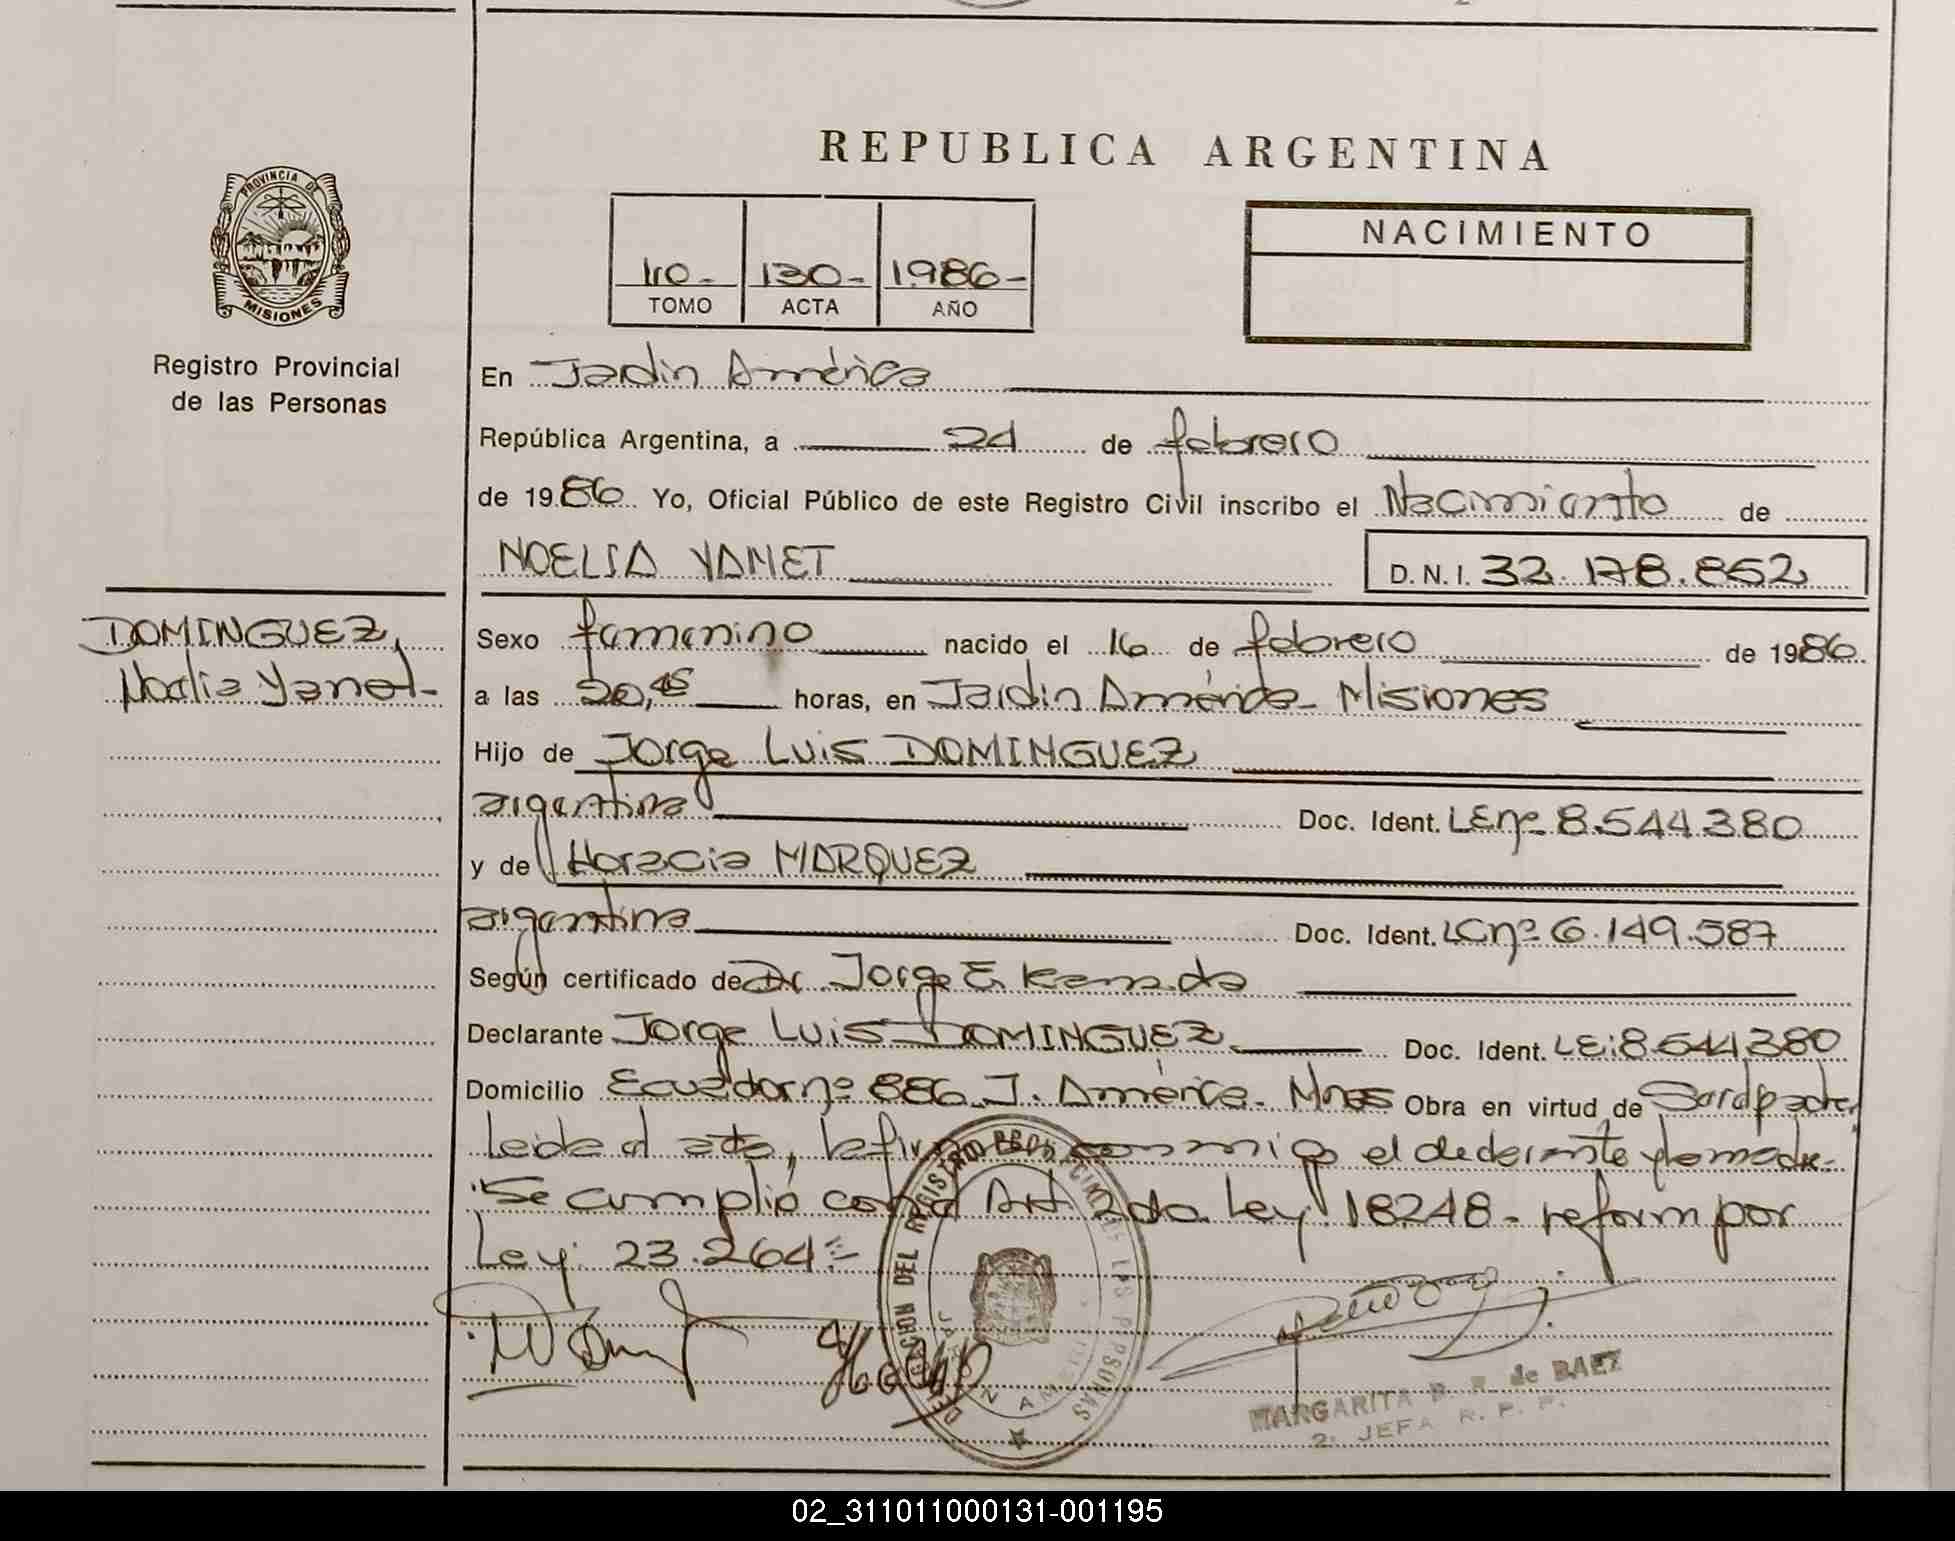 REPUBLICA ARGENTINA
PROVINCIA DE MISIONES
Registro Provincial
de las Personas
110- 130- 1.986-
TOMO ACTA AÑO
NACIMIENTO
En Jardin América
República Argentina, a 24 de febrero
de 1986. Yo, Oficial Público de este Registro Civil inscribo el Nacimiento de
NOELIA YANET D.N.I. 32.178.862
DOMINGUEZ,
Noelia Yanet-
Sexo femenino nacido el 16 de febrero de 1986.
a las 20,45 horas, en Jardin América- Misiones
Hijo de Jorge Luis DOMINGUEZ
argentina Doc. Ident. LEnº 8.544.380
y de Horacia MARQUEZ
argentina Doc. Ident. LCnº 6.149.587
Según certificado de Dr. Jorge E.
Declarante Jorge Luis DOMINGUEZ Doc. Ident. LE:8.544.380
Domicilio Ecuador nº 886 J. América- Mnes Obra en virtud de Ser el padre,
Leida el acta, la firman conmigo el declarante y la madre-
Se cumplió con el Art 2do. Ley 18248- reform por
Ley: 23.264
DELEGACION DEL REGISTRO PROVINCIAL DE LAS PERSONAS
JARDIN AMERICA
MARGARITA de BAEZ
2. JEFA R. P. P.
02_311011000131-001195